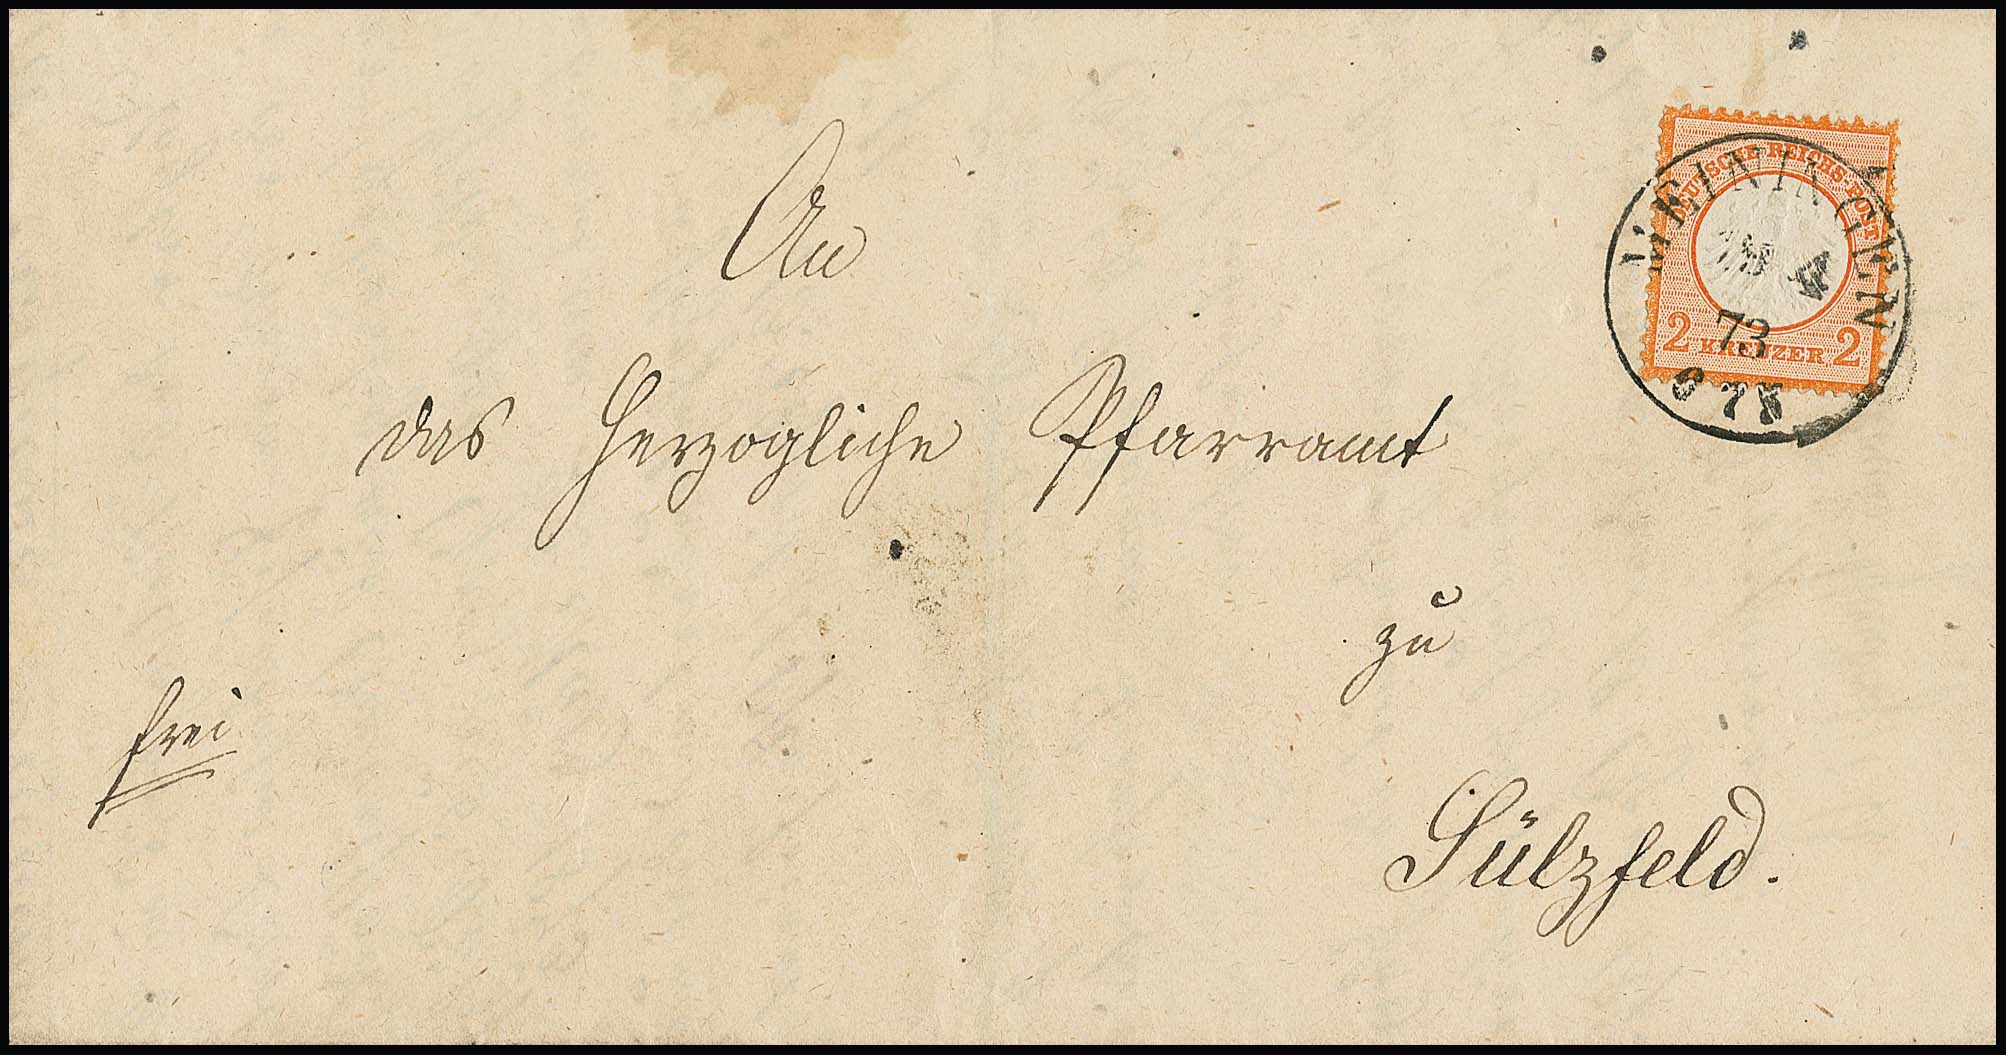 An
das Herzogliche Pfarramt
zu
Sülzfeld.
frei
DEUTSCHE REICHS-POST
2 KREUZER 2
MEININGEN
73